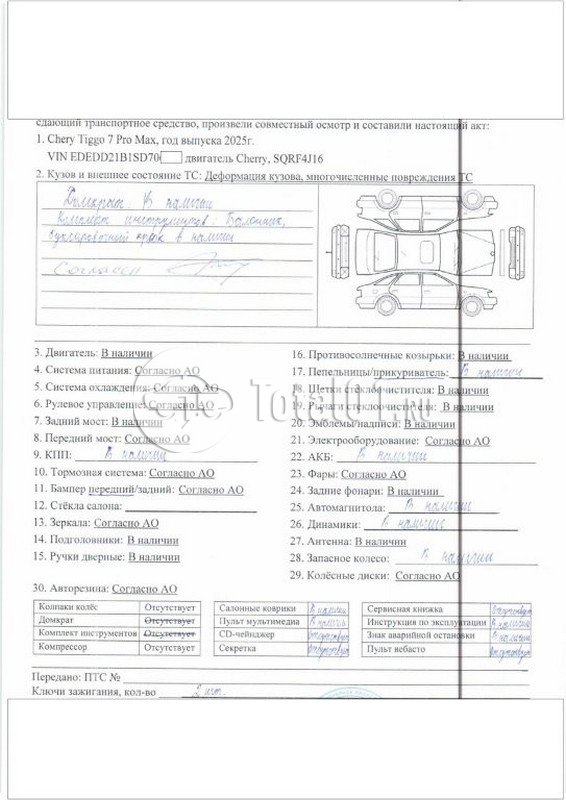 сдающий транспортное средство, произвели совместный осмотр и составили настоящий акт:
1. Chery Tiggo 7 Pro Max, год выпуска 2025г.
VIN EDEDD21B1SD70 двигатель Cherry, SQRF4J16
2. Кузов и внешнее состояние ТС: Деформация кузова, многочисленные повреждения ТС
Домкрат: В наличии
Комплект инструментов: Балонник,
буксировочный крюк в наличии
Согласен
3. Двигатель: В наличии
4. Система питания: Согласно АО
5. Система охлаждения: Согласно АО
6. Рулевое управление: Согласно АО
7. Задний мост: В наличии
8. Передний мост: Согласно АО
9. КПП: В наличии
10. Тормозная система: Согласно АО
11. Бампер передний/задний: Согласно АО
12. Стёкла салона:
13. Зеркала: Согласно АО
14. Подголовники: В наличии
15. Ручки дверные: В наличии
16. Противосолнечные козырьки: В наличии
17. Пепельницы/прикуриватель: В наличии
18. Щетки стеклоочистителя: В наличии
19. Рычаги стеклоочистителя: В наличии
20. Эмблемы/надписи: В наличии
21. Электрооборудование: Согласно АО
22. АКБ: В наличии
23. Фары: Согласно АО
24. Задние фонари: В наличии
25. Автомагнитола: В наличии
26. Динамики: В наличии
27. Антенна: В наличии
28. Запасное колесо: В наличии
29. Колёсные диски: Согласно АО
30. Авторезина: Согласно АО
Колпаки колёс Отсутствует
Домкрат Отсутствует
Комплект инструментов Отсутствует
Компрессор Отсутствует
Салонные коврики В наличии
Пульт мультимедиа В наличии
CD-чейнджер отсутствует
Секретка отсутствует
Сервисная книжка отсутствует
Инструкция по эксплуатации В наличии
Знак аварийной остановки В наличии
Пульт вебасто отсутствует
Передано: ПТС №
Ключи зажигания, кол-во 2 шт.
Total01.ru